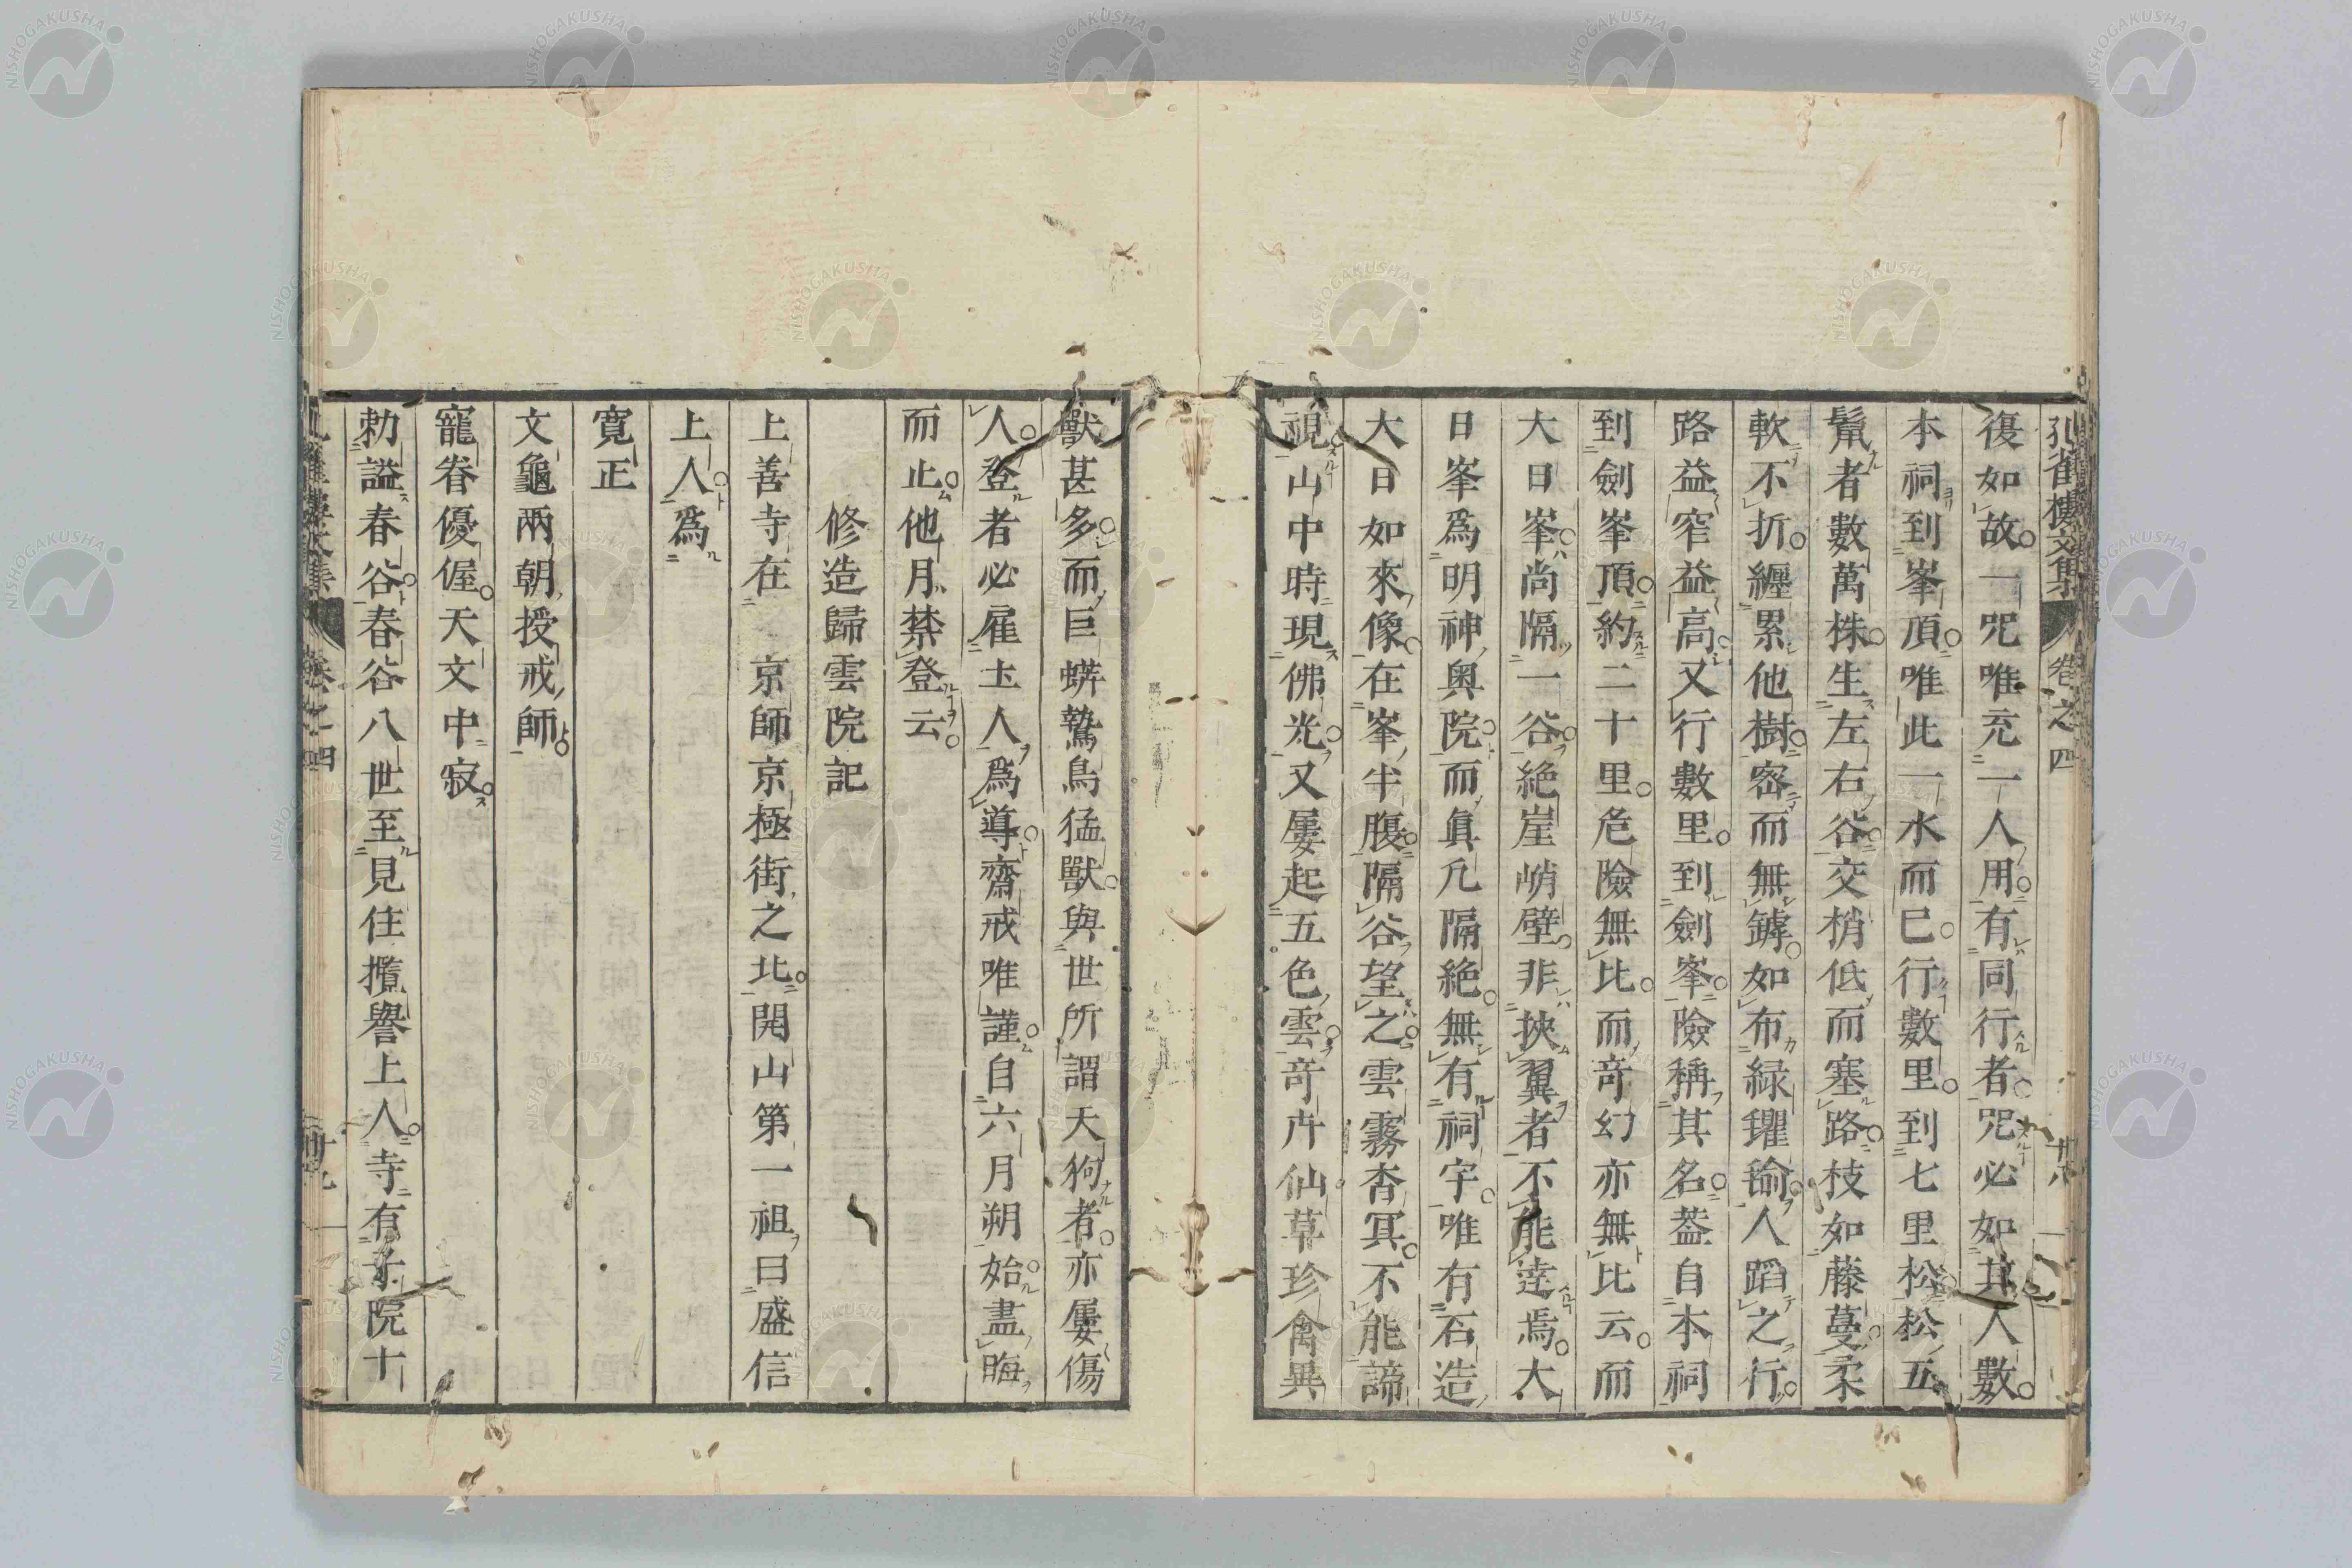 孔雀樓文集 卷之四 十八
復如故一咒唯充一人用有同行者咒必如其人數
本祠到峯頂唯此一水而已行數里到七里松松五
鬣者數萬株生左右谷交梢低而塞路枝如藤蔓柔
軟不折纒累他樹密而無罅如布緑氍毹人蹈之行
路益窄益高又行數里到劍峯險稱其名葢自本祠
到劍峯頂約二十里危險無比而竒幻亦無比云而
大日峯尚隔一谷絶崖峭壁非挾翼者不能逹焉大
日峯爲明神奥院而眞凢隔絶無有祠宇唯有石造
大日如來像在峯半腹隔谷望之雲霧杳冥不能諦
視山中時現佛光又屢起五色雲竒卉仙草珍禽異
獸甚多而巨蟒鷙鳥猛獸與世所謂天狗者亦屢傷
人登者必雇土人爲導齋戒唯謹自六月朔始盡晦
而止他月禁登云
修造歸雲院記
上善寺在 京師京極街之北開山第一祖曰盛信
上人爲
寛正
文龜兩朝授戒師
寵眷優偓天文中寂
勅謚春谷春谷八世至見住攬譽上人寺有子院十
孔雀樓文集 卷之四